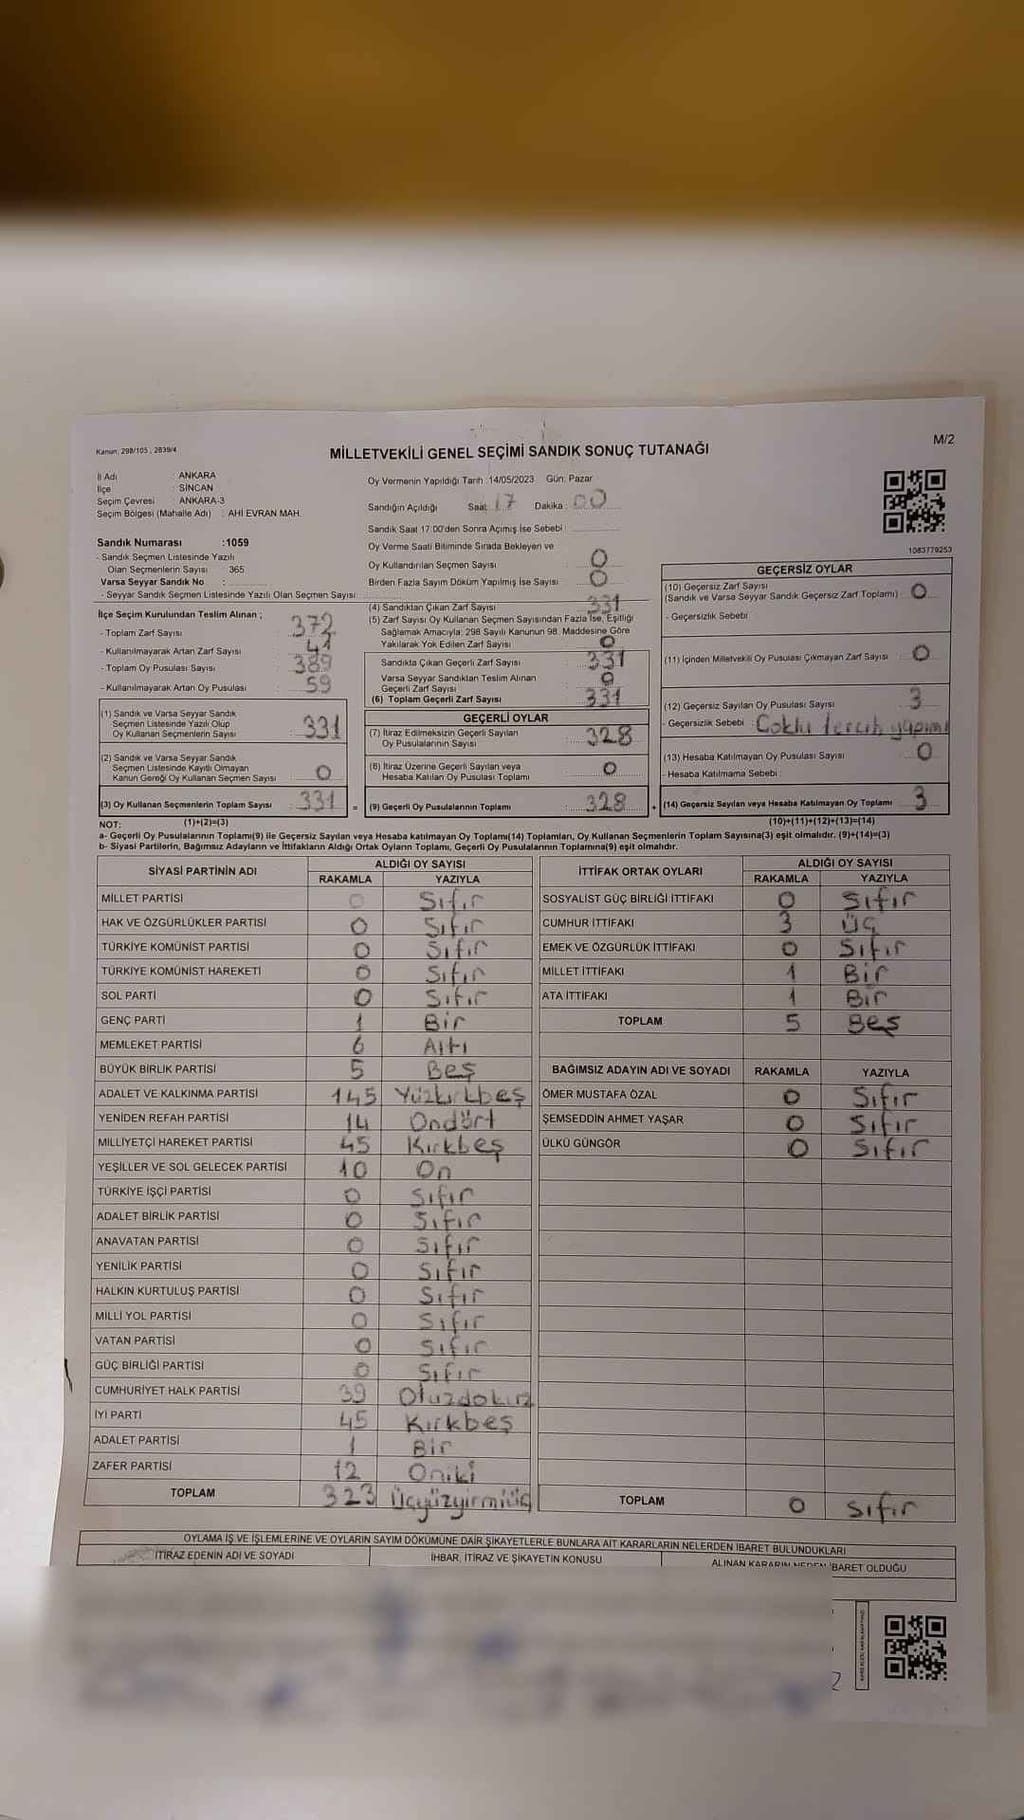 Kanun: 298/105, 2839/4
MİLLETVEKİLİ GENEL SEÇİMİ SANDIK SONUÇ TUTANAĞI
M/2
İl Adı : ANKARA
İlçe : SİNCAN
Seçim Çevresi : ANKARA-3
Seçim Bölgesi (Mahalle Adı) : AHİ EVRAN MAH.
Oy Vermenin Yapıldığı Tarih :14/05/2023 Gün: Pazar
Sandığın Açıldığı Saat: 17 Dakika : 00
Sandık Saat 17:00'den Sonra Açımış İse Sebebi :
Oy Verme Saati Bitiminde Sırada Bekleyen ve
Oy Kullandırılan Seçmen Sayısı : 0
Birden Fazla Sayım Döküm Yapılmış İse Sayısı : 0
1083779253
Sandık Numarası :1059
- Sandık Seçmen Listesinde Yazılı
Olan Seçmenlerin Sayısı : 365
Varsa Seyyar Sandık No :
- Seyyar Sandık Seçmen Listesinde Yazılı Olan Seçmen Sayısı :
İlçe Seçim Kurulundan Teslim Alınan ;
- Toplam Zarf Sayısı : 372
- Kullanılmayarak Artan Zarf Sayısı : 41
- Toplam Oy Pusulası Sayısı : 389
- Kullanılmayarak Artan Oy Pusulası : 59
(1) Sandık ve Varsa Seyyar Sandık
Seçmen Listesinde Yazılı Olup
Oy Kullanan Seçmenlerin Sayısı : 331
(2) Sandık ve Varsa Seyyar Sandık
Seçmen Listesinde Kayıtlı Olmayan
Kanun Gereği Oy Kullanan Seçmen Sayısı : 0
(3) Oy Kullanan Seçmenlerin Toplam Sayısı : 331
(1)+(2)=(3)
(4) Sandıktan Çıkan Zarf Sayısı : 331
(5) Zarf Sayısı Oy Kullanan Seçmen Sayısından Fazla İse, Eşitliği
Sağlamak Amacıyla; 298 Sayılı Kanunun 98. Maddesine Göre
Yakılarak Yok Edilen Zarf Sayısı : 0
Sandıkta Çıkan Geçerli Zarf Sayısı : 331
Varsa Seyyar Sandıktan Teslim Alınan
Geçerli Zarf Sayısı : 0
(6) Toplam Geçerli Zarf Sayısı : 331
GEÇERLİ OYLAR
(7) İtiraz Edilmeksizin Geçerli Sayılan
Oy Pusulalarının Sayısı : 328
(8) İtiraz Üzerine Geçerli Sayılan veya
Hesaba Katılan Oy Pusulası Toplamı : 0
= (9) Geçerli Oy Pusulalarının Toplamı : 328
GEÇERSİZ OYLAR
(10) Geçersiz Zarf Sayısı
(Sandık ve Varsa Seyyar Sandık Geçersiz Zarf Toplamı) : 0
- Geçersizlik Sebebi :
(11) İçinden Milletvekili Oy Pusulası Çıkmayan Zarf Sayısı : 0
(12) Geçersiz Sayılan Oy Pusulası Sayısı : 3
- Geçersizlik Sebebi : Çoklu tercih yapımı
(13) Hesaba Katılmayan Oy Pusulası Sayısı : 0
- Hesaba Katılmama Sebebi :
+ (14) Geçersiz Sayılan veya Hesaba Katılmayan Oy Toplamı : 3
(10)+(11)+(12)+(13)=(14)
NOT:
a- Geçerli Oy Pusulalarının Toplamı(9) ile Geçersiz Sayılan veya Hesaba katılmayan Oy Toplamı(14) Toplamları, Oy Kullanan Seçmenlerin Toplam Sayısına(3) eşit olmalıdır. (9)+(14)=(3)
b- Siyasi Partilerin, Bağımsız Adayların ve İttifakların Aldığı Ortak Oyların Toplamı, Geçerli Oy Pusulalarının Toplamına(9) eşit olmalıdır.
SİYASİ PARTİNİN ADI ALDIĞI OY SAYISI
RAKAMLA YAZIYLA
MİLLET PARTİSİ 0 Sıfır
HAK VE ÖZGÜRLÜKLER PARTİSİ 0 Sıfır
TÜRKİYE KOMÜNİST PARTİSİ 0 Sıfır
TÜRKİYE KOMÜNİST HAREKETİ 0 Sıfır
SOL PARTİ 0 Sıfır
GENÇ PARTİ 1 Bir
MEMLEKET PARTİSİ 6 Altı
BÜYÜK BİRLİK PARTİSİ 5 Beş
ADALET VE KALKINMA PARTİSİ 145 Yüzkırkbeş
YENİDEN REFAH PARTİSİ 14 Ondört
MİLLİYETÇİ HAREKET PARTİSİ 45 Kırkbeş
YEŞİLLER VE SOL GELECEK PARTİSİ 10 On
TÜRKİYE İŞÇİ PARTİSİ 0 Sıfır
ADALET BİRLİK PARTİSİ 0 Sıfır
ANAVATAN PARTİSİ 0 Sıfır
YENİLİK PARTİSİ 0 Sıfır
HALKIN KURTULUŞ PARTİSİ 0 Sıfır
MİLLİ YOL PARTİSİ 0 Sıfır
VATAN PARTİSİ 0 Sıfır
GÜÇ BİRLİĞİ PARTİSİ 0 Sıfır
CUMHURİYET HALK PARTİSİ 39 Otuzdokuz
İYİ PARTİ 45 Kırkbeş
ADALET PARTİSİ 1 Bir
ZAFER PARTİSİ 12 Oniki
TOPLAM 323 Üçyüzyirmiüç
İTTİFAK ORTAK OYLARI ALDIĞI OY SAYISI
RAKAMLA YAZIYLA
SOSYALİST GÜÇ BİRLİĞİ İTTİFAKI 0 Sıfır
CUMHUR İTTİFAKI 3 Üç
EMEK VE ÖZGÜRLÜK İTTİFAKI 0 Sıfır
MİLLET İTTİFAKI 1 Bir
ATA İTTİFAKI 1 Bir
TOPLAM 5 Beş
BAĞIMSIZ ADAYIN ADI VE SOYADI RAKAMLA YAZIYLA
ÖMER MUSTAFA ÖZAL 0 Sıfır
ŞEMSEDDİN AHMET YAŞAR 0 Sıfır
ÜLKÜ GÜNGÖR 0 Sıfır
TOPLAM 0 Sıfır
OYLAMA İŞ VE İŞLEMLERİNE VE OYLARIN SAYIM DÖKÜMÜNE DAİR ŞİKAYETLERLE BUNLARA AİT KARARLARIN NELERDEN İBARET BULUNDUKLARI
İTİRAZ EDENİN ADI VE SOYADI İHBAR, İTİRAZ VE ŞİKAYETİN KONUSU ALINAN KARARIN NEDEN İBARET OLDUĞU